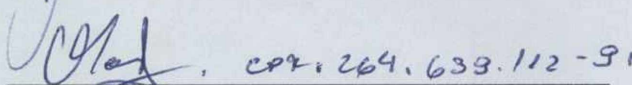 CPF. 264.639.112-91